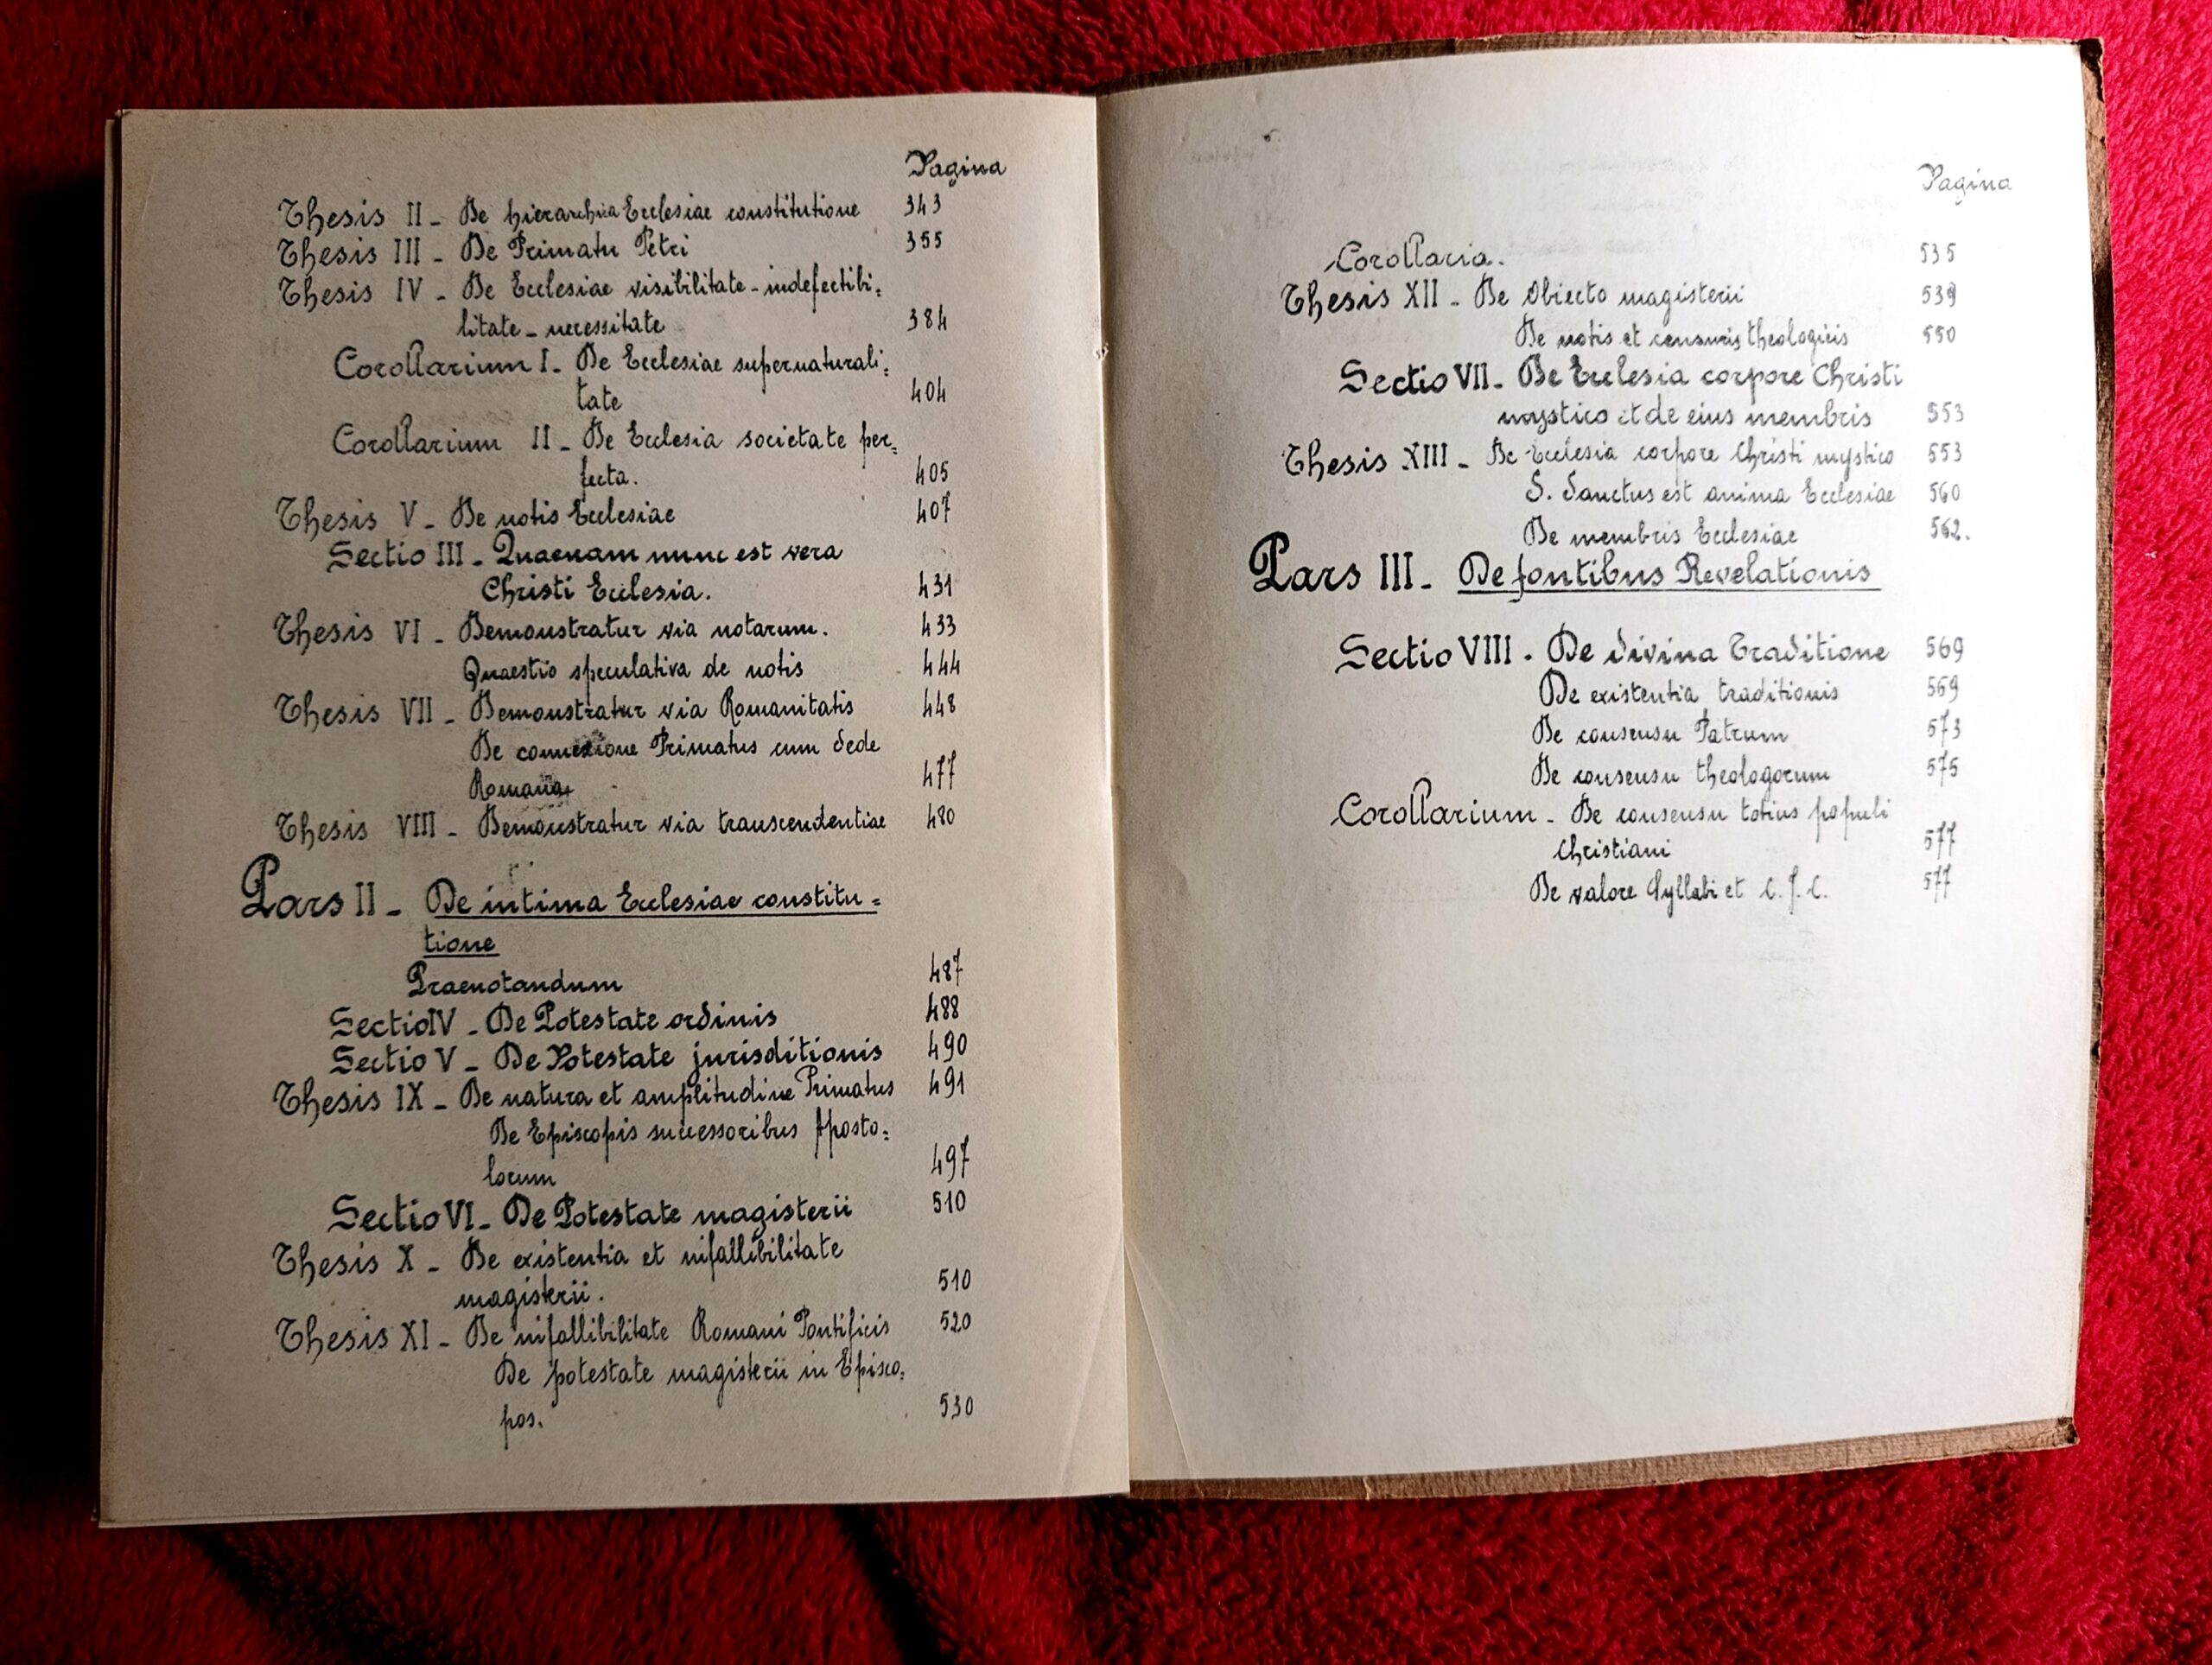 Pagina
Thesis II - De hierarchica Ecclesiae constitutione 343
Thesis III - De Primatu Petri 355
Thesis IV - De Ecclesiae visibilitate - indefectibi=
litate - necessitate 384
Corollarium I - De Ecclesiae supernaturali=
tate 404
Corollarium II - De Ecclesia societate per=
fecta. 405
Thesis V - De notis Ecclesiae 407
Sectio III - Quaenam nunc est vera
Christi Ecclesia. 431
Thesis VI - Demonstratur via notarum. 433
Quaestio speculativa de notis 444
Thesis VII - Demonstratur via Romanitatis 448
De connexione Primatus cum Sede
Romana 477
Thesis VIII - Demonstratur via transcendentiae 480
Pars II - De intima Ecclesiae constitu=
tione
Praenotandum 487
Sectio IV - De Potestate ordinis 488
Sectio V - De Potestate jurisditionis 490
Thesis IX - De natura et amplitudine Primatus 491
De Episcopis successoribus Aposto=
lorum 497
Sectio VI - De Potestate magisterii 510
Thesis X - De existentia et infallibilitate
magisterii. 510
Thesis XI - De infallibilitate Romani Pontificis 520
De potestate magisterii in Episco=
pos. 530
Pagina
Corollaria. 535
Thesis XII - De Obiecto magisterii 539
De notis et censuris theologicis 550
Sectio VII - De Ecclesia corpore Christi
mystico et de eius membris 553
Thesis XIII - De Ecclesia corpore Christi mystico 553
S. Sanctus est anima Ecclesiae 560
De membris Ecclesiae 562.
Pars III - De fontibus Revelationis
Sectio VIII - De divina Traditione 569
De existentia traditionis 569
De consensu Patrum 573
De consensu theologorum 575
Corollarium - De consensu totius populi
Christiani 577
De valore Syllabi et C.J.C. 577